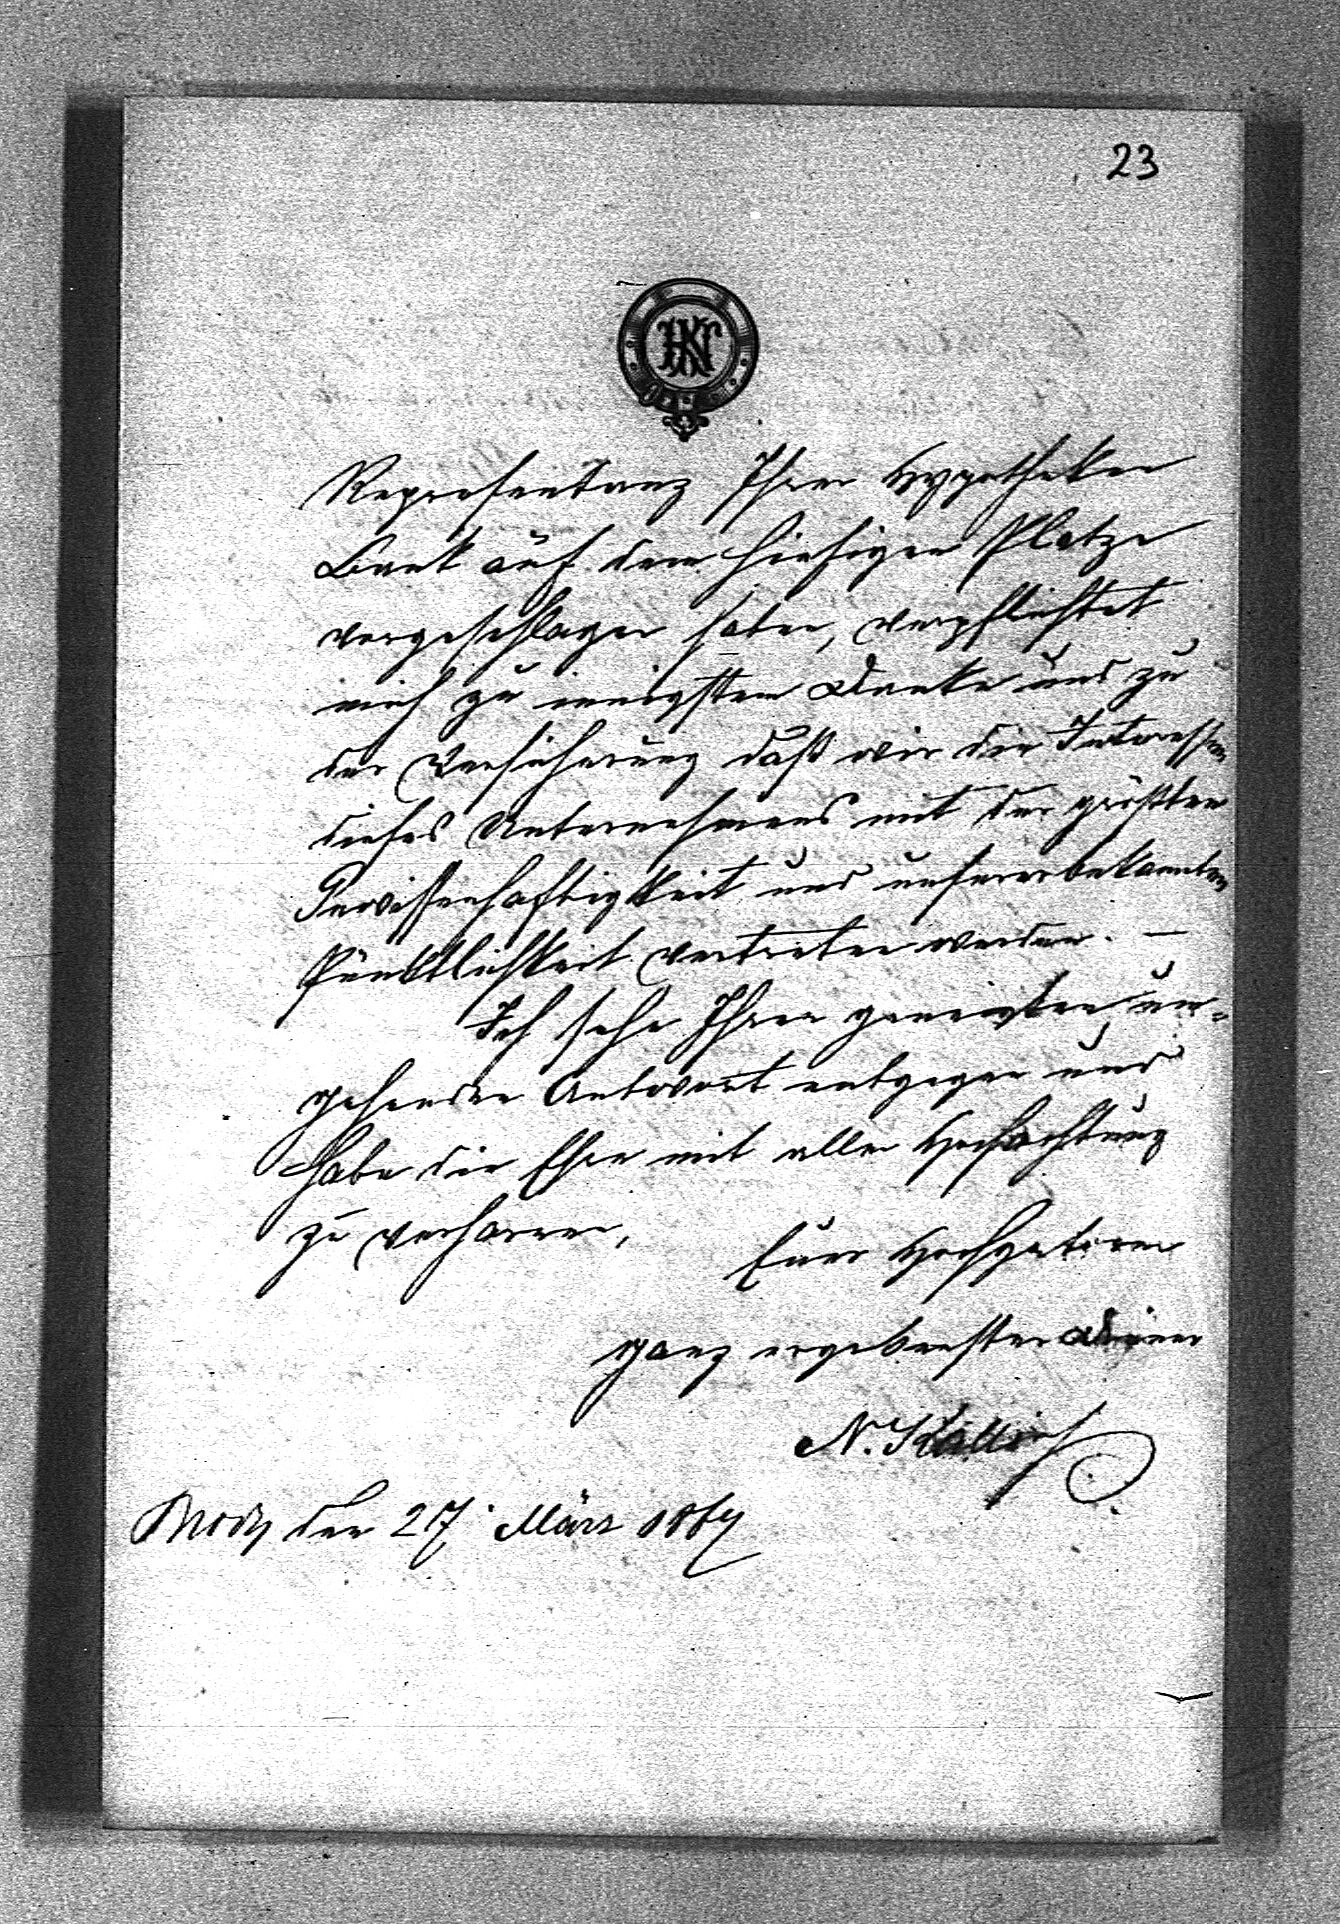 23
Represententanz Ihrer Hypotheken
Bank auf dem hiesigen Platze
vorgeschlagen haben, verpflichtet
mich zu innigstem Danke und zu
der Versicherung daß wir die Interessen
dieses Unternehmens mit der größten
Gewissenhaftigkeit und unserer bekannten
Pünktlichkeit vertreten werden. —
Ich sehe Ihrer geneigten, um-
gehenden Antwort entgegen und
habe die Ehre mit aller Hochachtung
zu verharren,
Euer Hochgeboren
ganz ergebenster Diener
N. Kallir
Brody den 27. März 1867